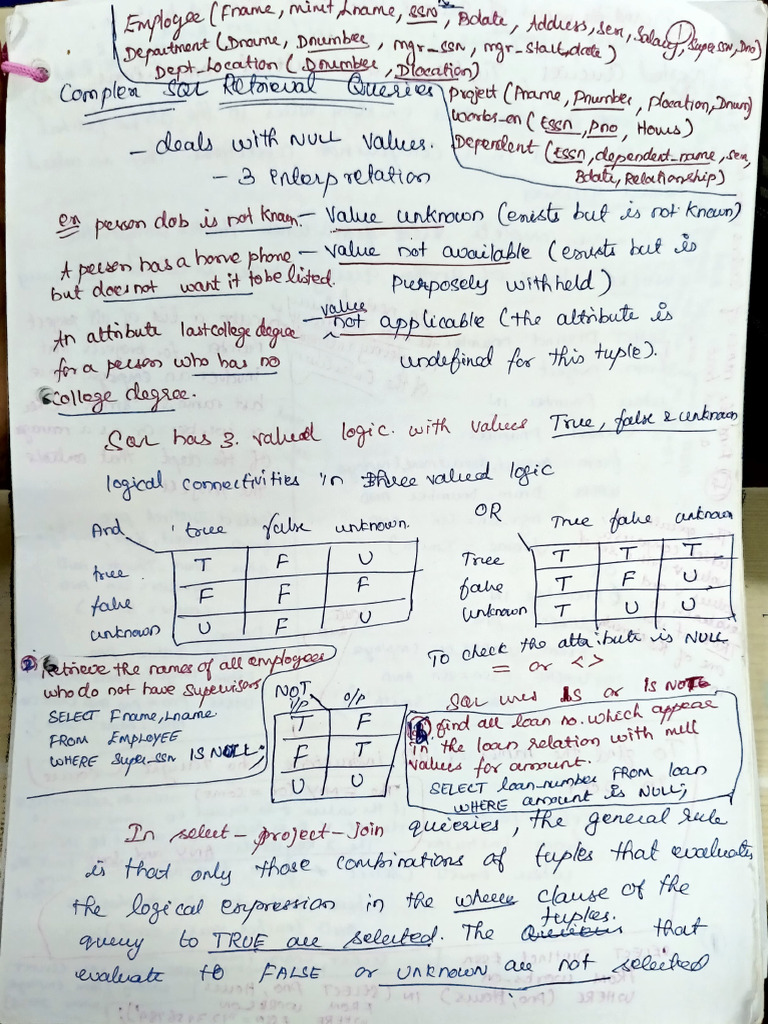 Employee (Fname, minit, Lname, SSN, Bdate, Address, sex, Salary, Super SSN, Dno)
1
Department (Dname, Dnumber, mgr_ssn, mgr_start_date)
Dept_Location (Dnumber, Dlocation)
Complex SQL Retrieval Queries
Project (Pname, Pnumber, Plocation, Dnum)
Works_on (ESSN, Pno, Hours)
Dependent (ESSN, dependent_name, sex,
Bdate, Relationship)
- deals with NULL values.
- 3 interpretation
ex person dob is not known - Value unknown (exists but is not known)
A person has a home phone - value not available (exists but is
but does not want it to be listed. purposely withheld)
An attribute last college degree - value not applicable (the attribute is
for a person who has no undefined for this tuple).
college degree.
SQL has 3. valued logic. with values True, false & unknown
logical connectivities in three valued logic
And true false unknown.
true T F U
false F F F
unknown U F U
OR True false unknown
True T T T
false T F U
unknown T U U
To check the attribute is NULL
= or <>
SQL uses IS or IS NOT
Retrieve the names of all employees
who do not have supervisors
SELECT Fname, Lname
FROM EMPLOYEE
WHERE Super_ssn IS NULL;
NOT
i/p o/p
T F
F T
U U
find all loan no. which appear
in the loan relation with null
values for amount.
SELECT loan-number FROM loan
WHERE amount is NULL;
In select-project-join quieries, the general rule
is that only those combinations of tuples that evaluates
the logical expression in the where clause of the
query to TRUE are selected. The tuples. that
evaluate to FALSE or UNKNOWN are not selected